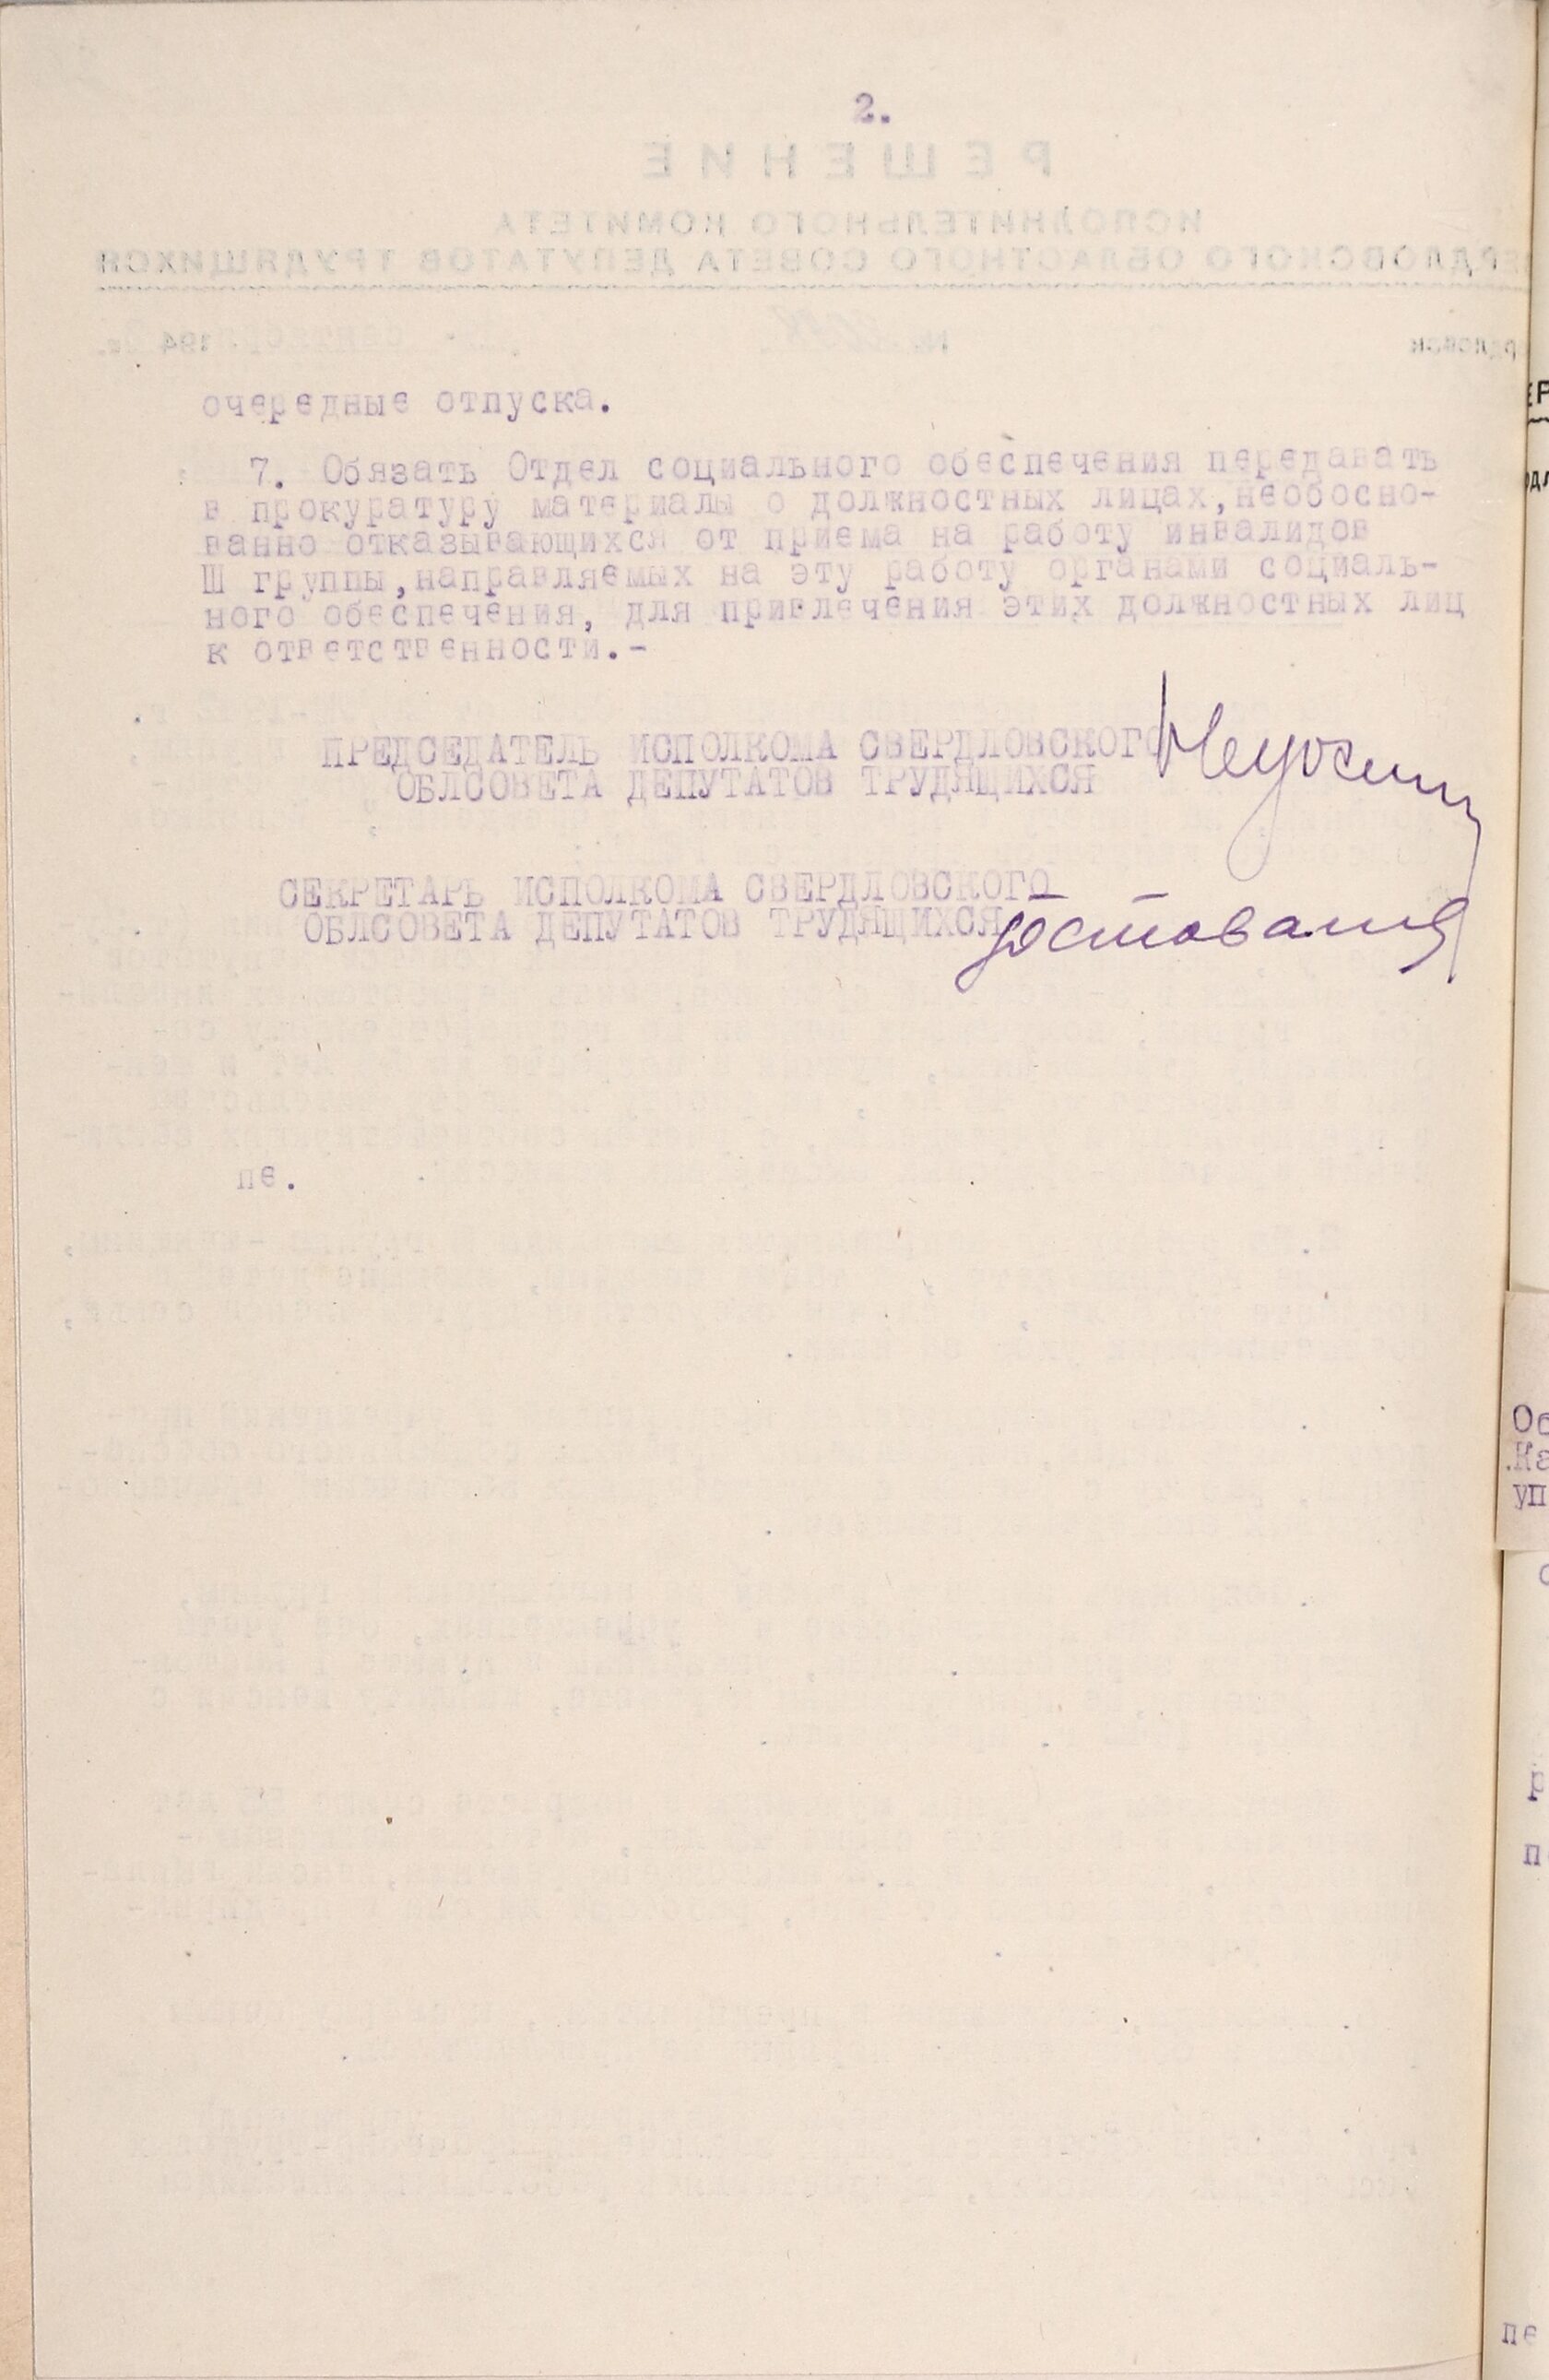 2.
очередные отпуска.
7. Обязать Отдел социального обеспечения передавать
в прокуратуру материалы о должностных лицах,необосно-
ванно отказывающихся от приема на работу инвалидов
Ш группы,направляемых на эту работу органами социаль-
ного обеспечения, для привлечения этих должностных лиц
к ответственности.-
ПРЕДСЕДАТЕЛЬ ИСПОЛКОМА СВЕРДЛОВСКОГО
ОБЛСОВЕТА ДЕПУТАТОВ ТРУДЯЩИХСЯ
СЕКРЕТАРЬ ИСПОЛКОМА СВЕРДЛОВСКОГО
ОБЛСОВЕТА ДЕПУТАТОВ ТРУДЯЩИХСЯ
пе.